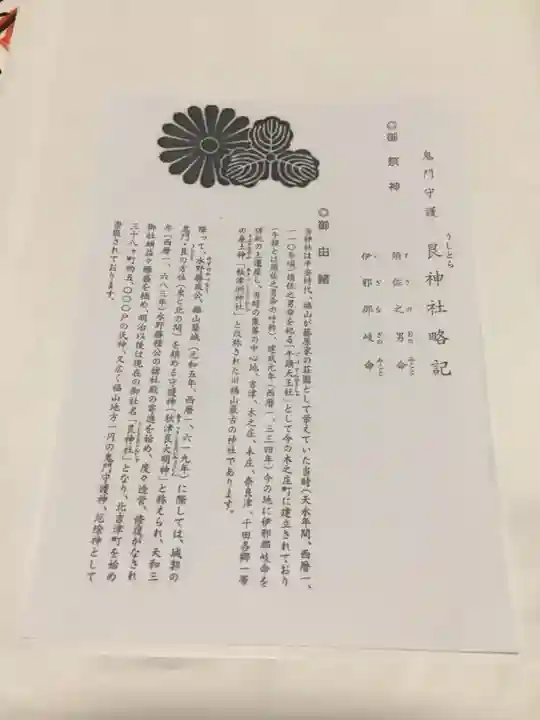 鬼門守護 艮神社略記
うしとら
◎御祭神
須佐之男命
すさのおのみこと
伊邪那岐命
いざなぎのみこと
◎御由緒
当神社は平安時代、福山が藤原家の荘園として栄えていた当時(天永年間、西暦一、
一一〇年頃)須佐之男命を祀る「牛頭天王社」として今の木之庄町に建立されており
(牛頭とは須佐之男命の呼称)、建武元年(西暦一、三三四年)今の地に伊邪那岐命を
併祀の上遷座し、当時の集落の中心地、吉津、木之庄、本庄、奈良津、千田各郷一帯
の産土神「秋津洲神社」と改称された旧福山最古の神社であります。
降って、水野勝成公、福山築城(元和五年、西暦一、六一九年)に際しては、城郭の
鬼門・艮の方位(東と北の間)を鎮める守護神「秋津艮大明神」と称えられ、天和三
年(西暦一、六八三年)水野勝種公の諸社殿の寄進を始め、度々造営、修復がなされ
御社頭益々隆盛を極め、明治以後は現在の御社名「艮神社」となり、北吉津町を始め
三十八ヶ町約五、〇〇〇戸の氏神、又広く福山地方一円の鬼門守護神、厄除神として
崇敬されております。